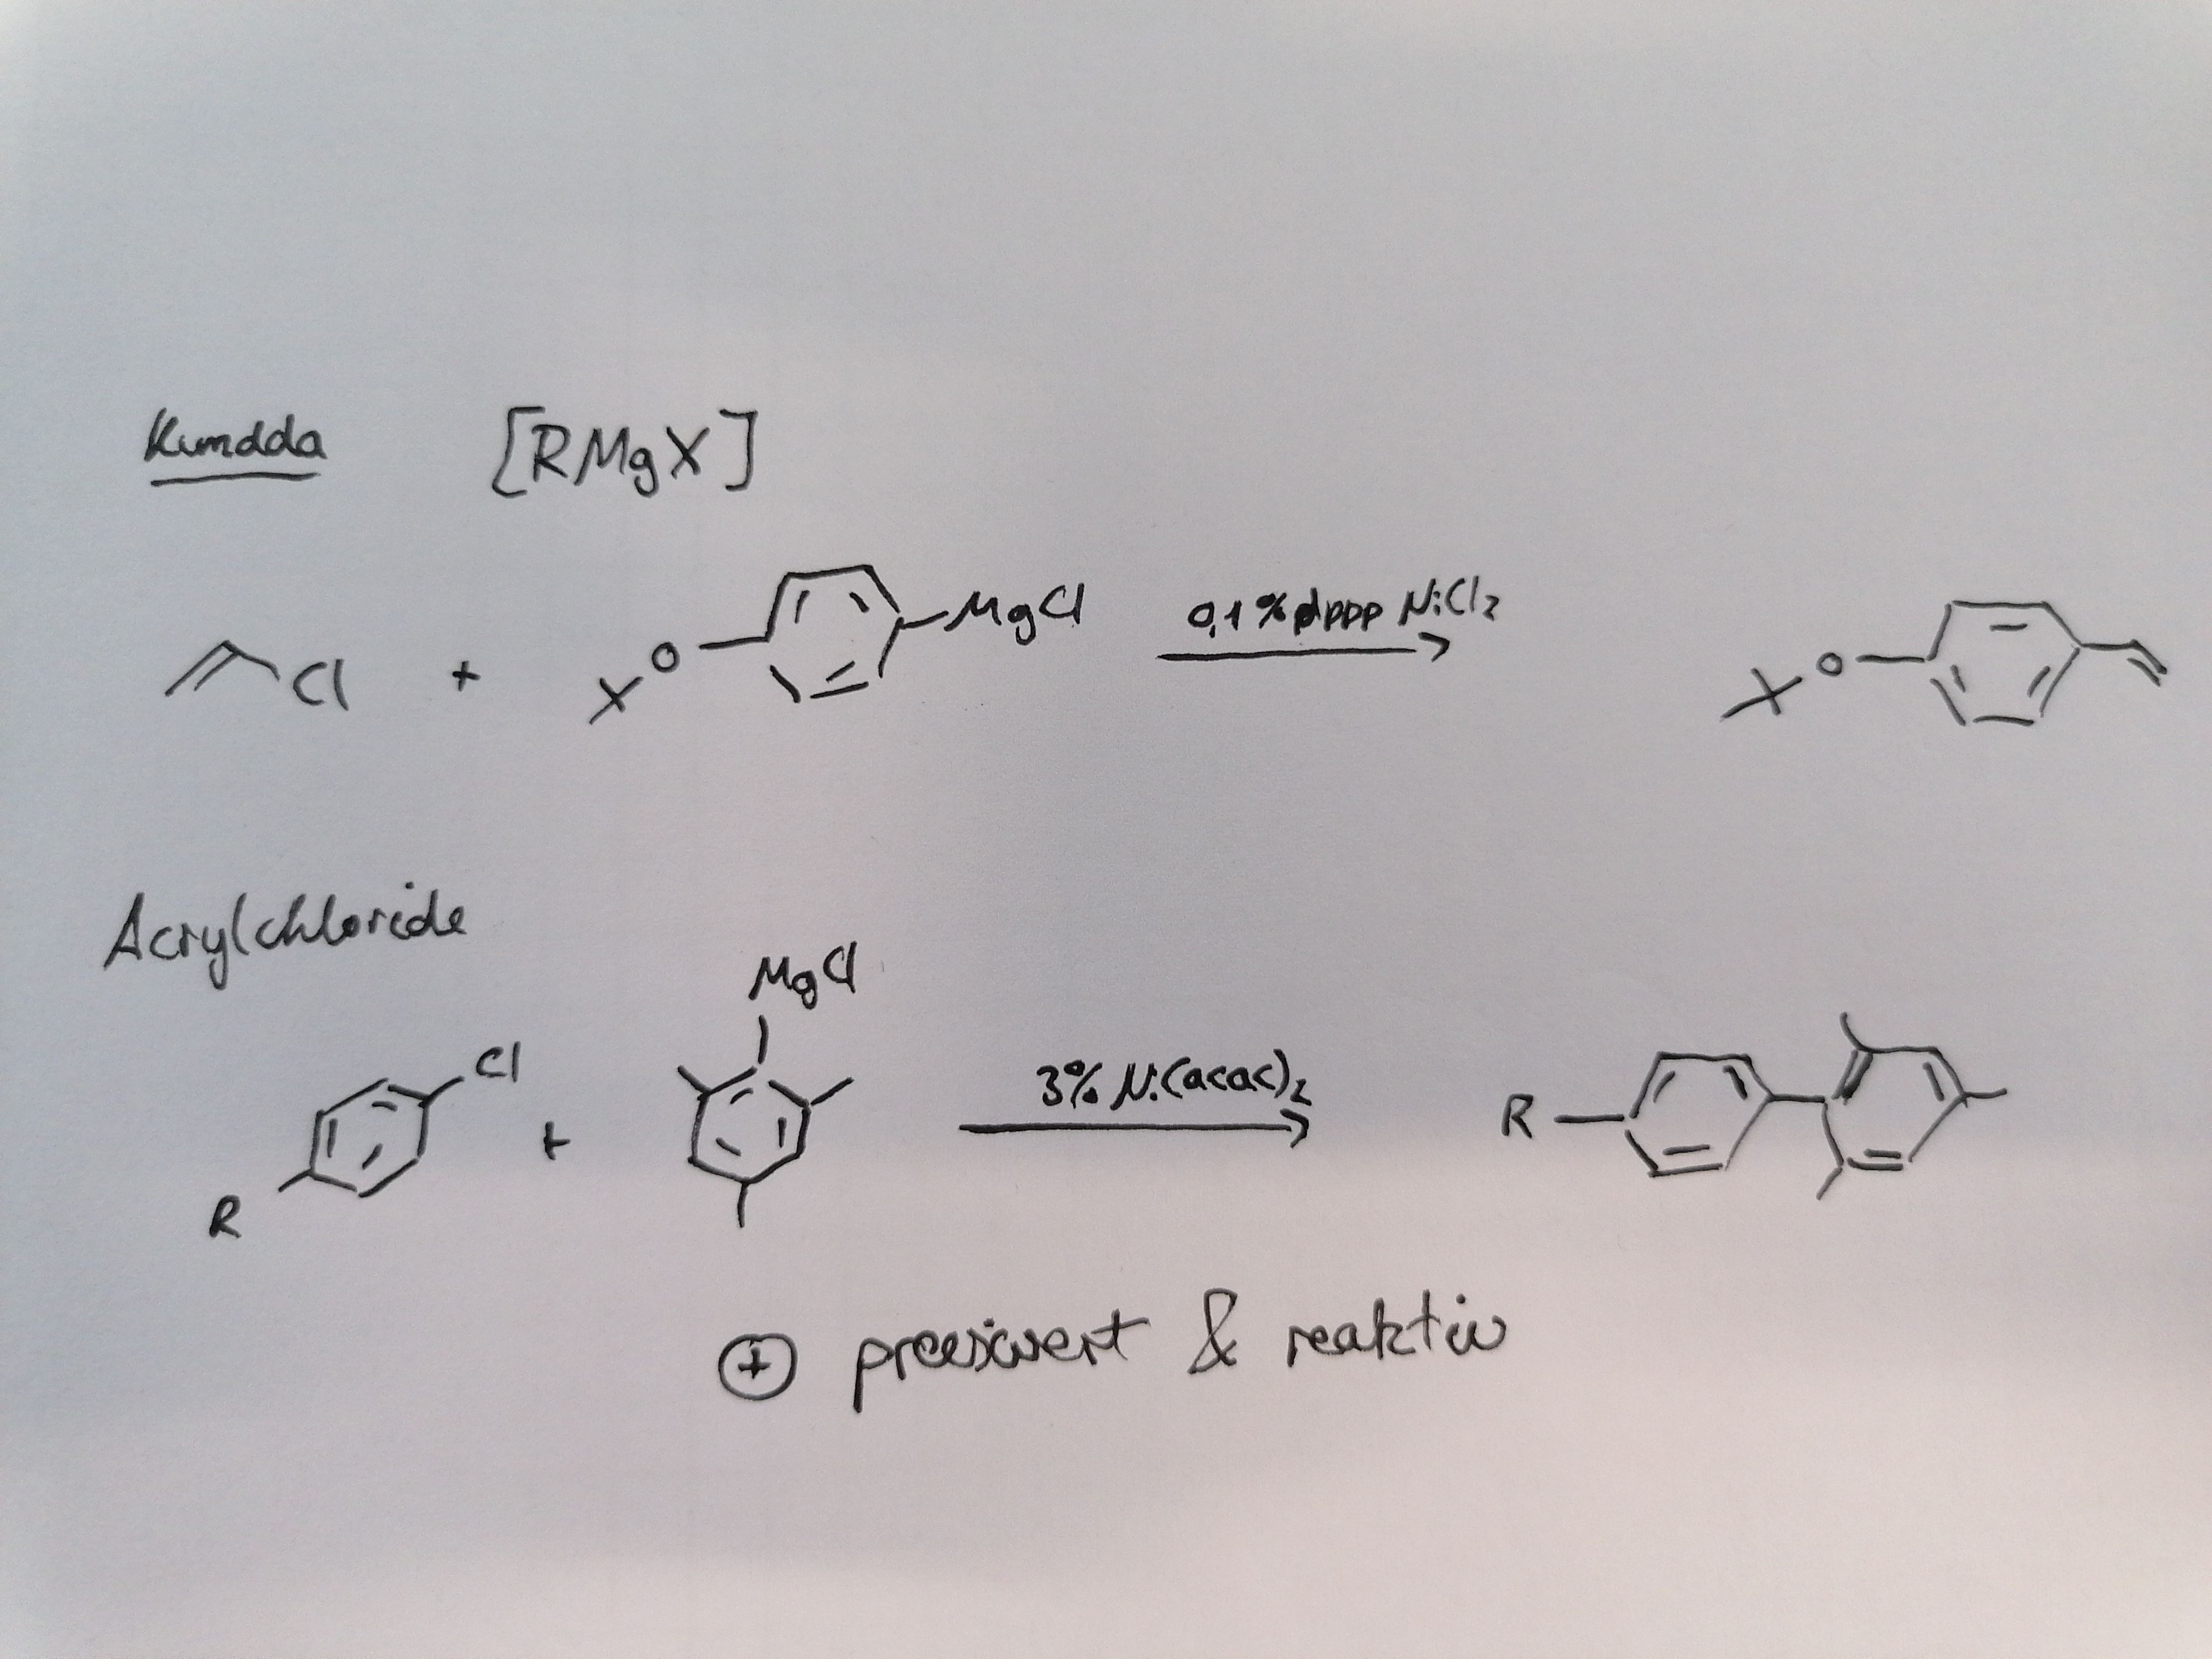 Kumdda [RMgX]
Cl + O MgCl 0,1% dppp NiCl2 O
Acrylchloride
R Cl + MgCl 3% Ni(acac)2 R
⊕ preiswert & reaktiv